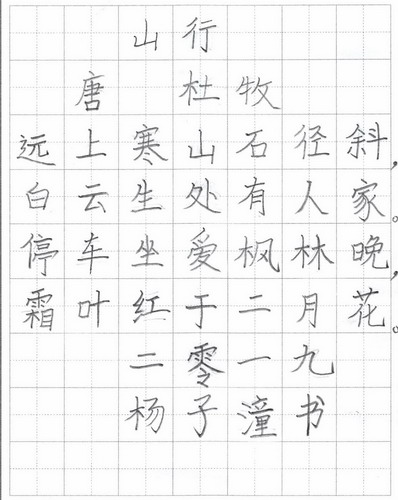 山行
唐 杜牧
远上寒山石径斜，
白云生处有人家。
停车坐爱枫林晚，
霜叶红于二月花。
二零一九
杨子潼书